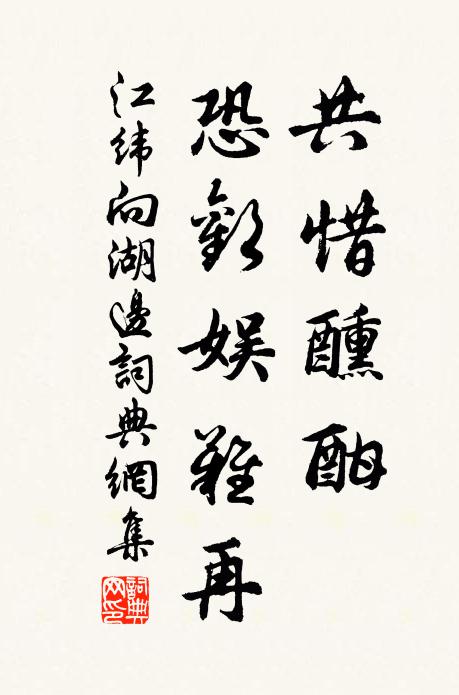 共惜醺酣
恐歡娛難再
江緯向湖邊詞典網集
詞典网印